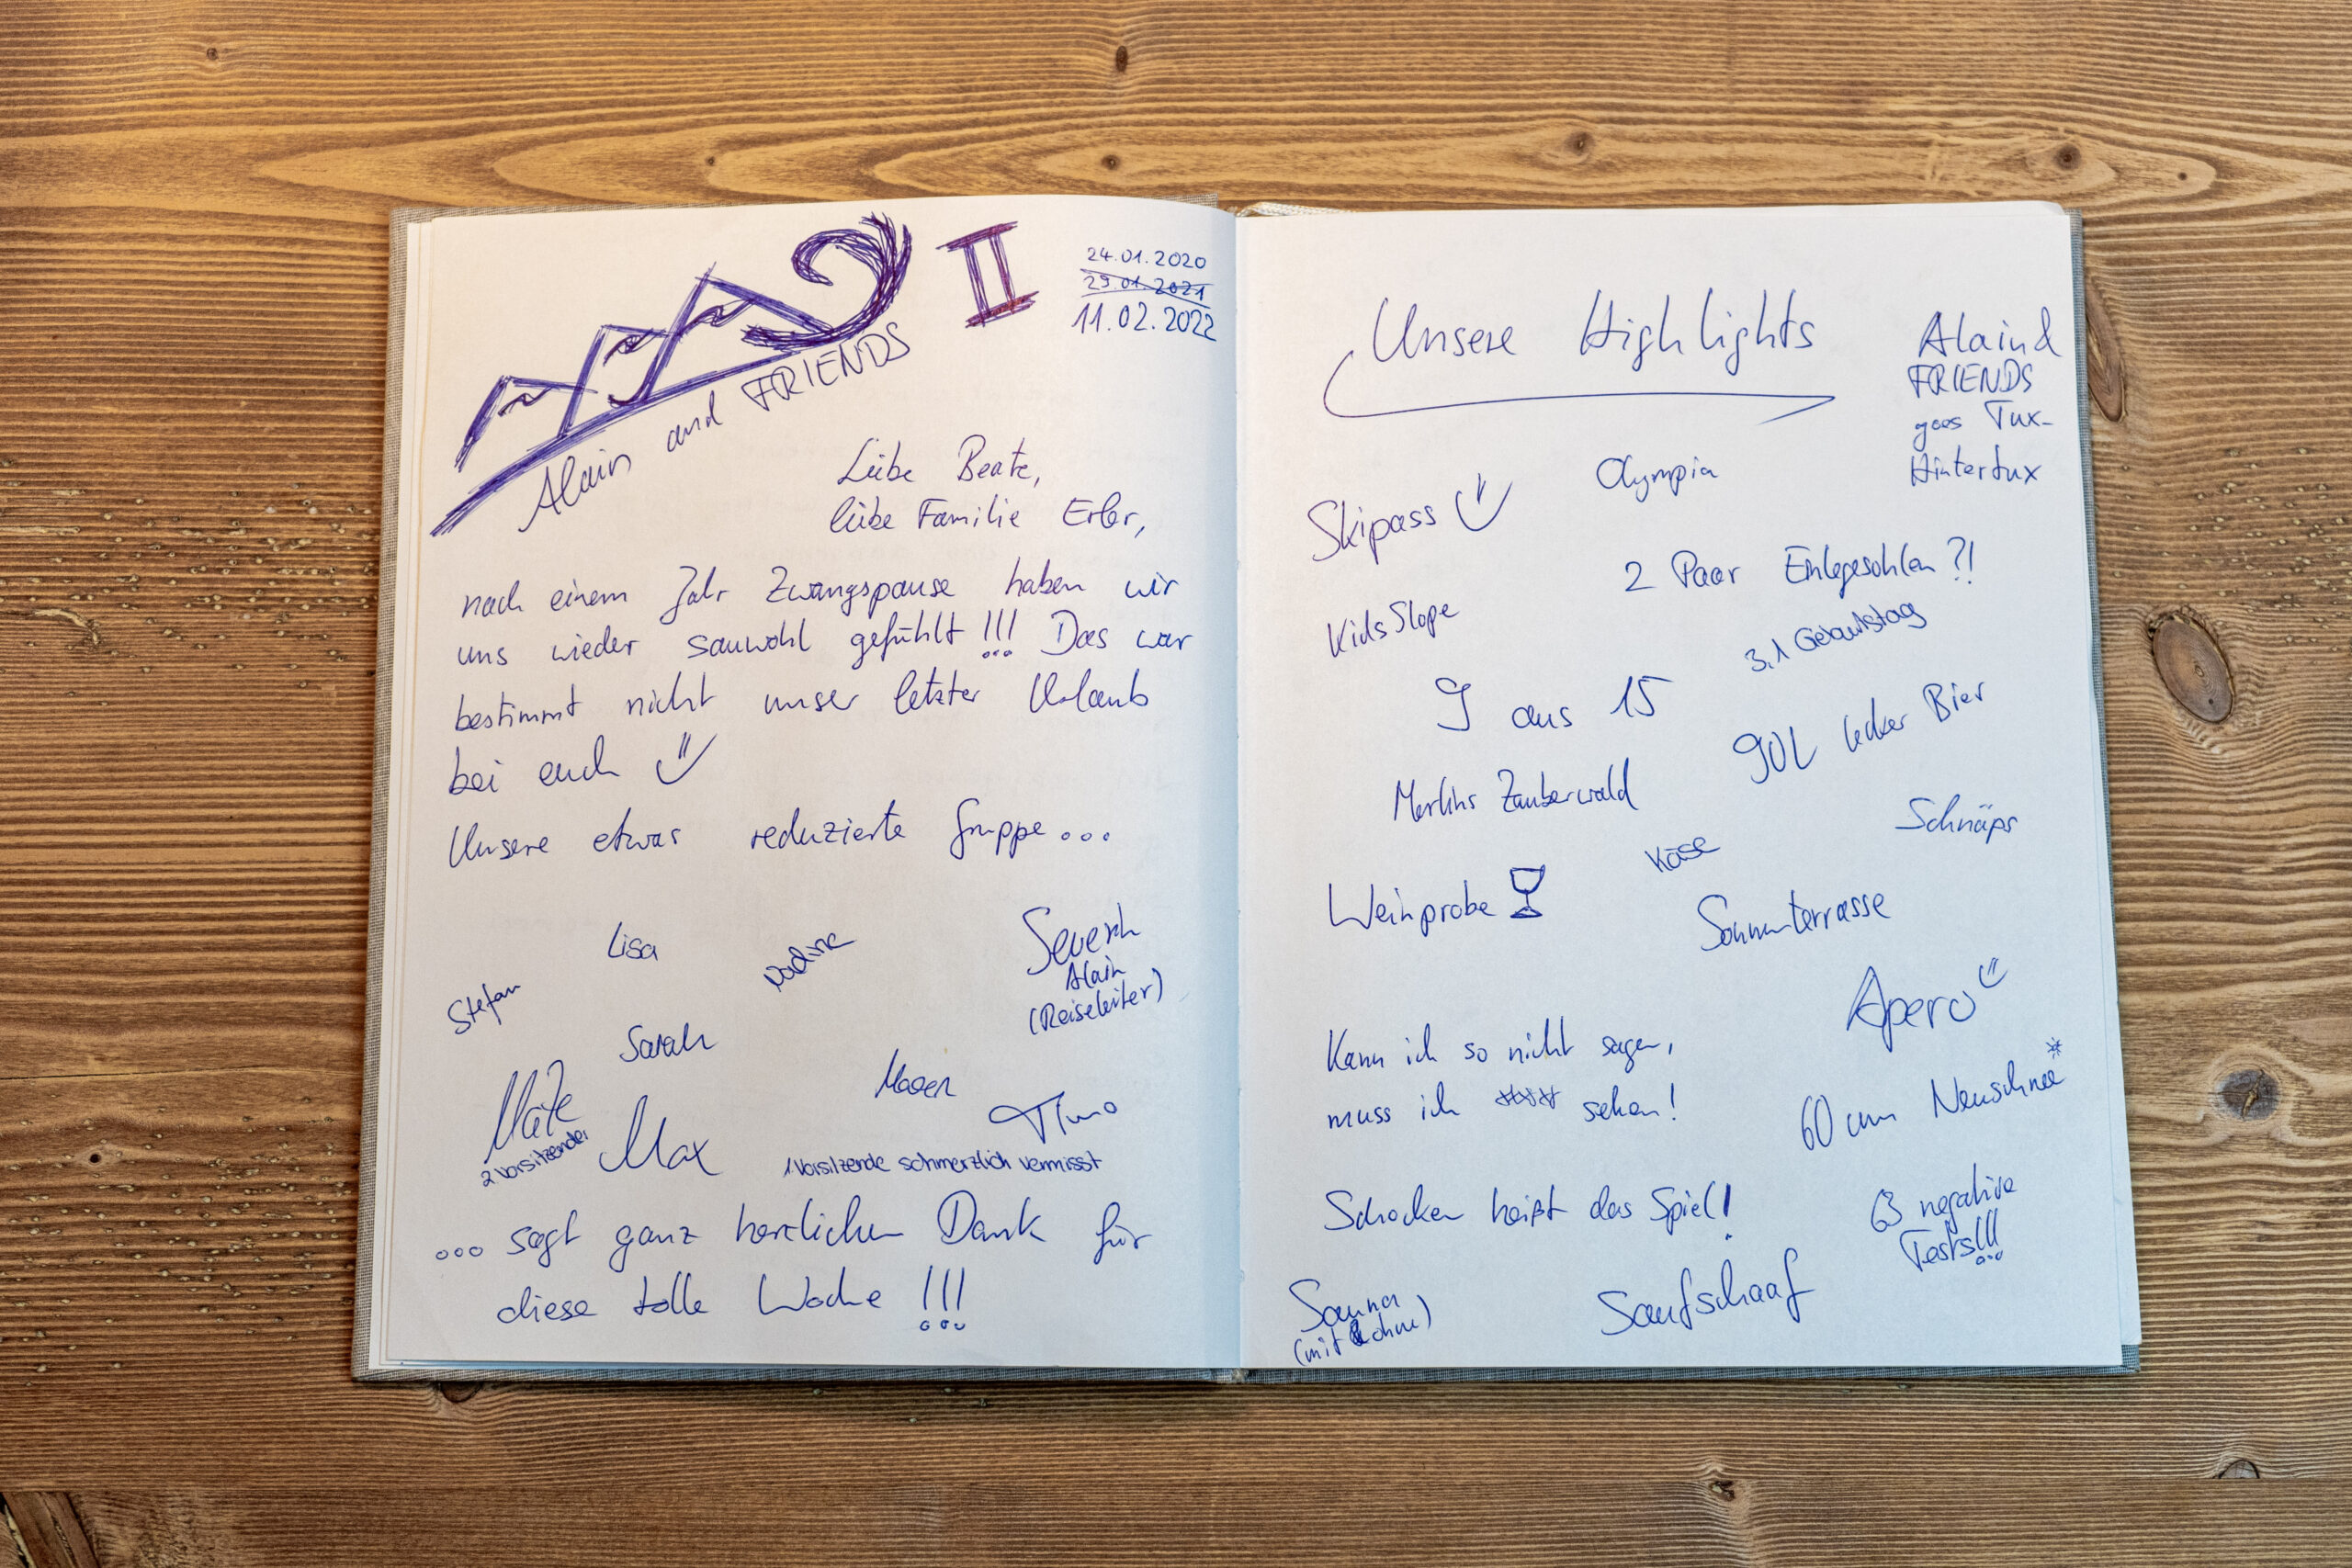 II
24.01.2020
29.01.2021
11.02.2022
Alain and FRIENDS
Liebe Beate,
liebe Familie Erler,
nach einem Jahr Zwangspause haben wir
uns wieder sauwohl gefühlt!!! Das war
bestimmt nicht unser letzter Urlaub
bei euch
Unsere etwas reduzierte Gruppe...
Lisa
Nadine
Severin
Alain
(Reiseleiter)
Stefan
Sarah
Maren
Timo
Mate
2 Vorsitzender
Max
1 Vorsitzende schmerzlich vermisst
... sagt ganz herzlichen Dank für
diese tolle Woche !!!
Unsere Highlights
Alain &
FRIENDS
goes Tux-
Hintertux
Skipass
Olympia
2 Paar Einlegesohlen ?!
KidsSlope
3.1 Geburtstag
9 aus 15
90L lecker Bier
Merlins Zauberwald
Schnäps
Käse
Weinprobe
Sonnenterrasse
Apero
Kann ich so nicht sagen,
muss ich sehen!
60 cm Neuschnee*
Schocken heißt das Spiel!
63 negative
Tests!!!
Sauna
(mit & ohne)
Saufschaaf